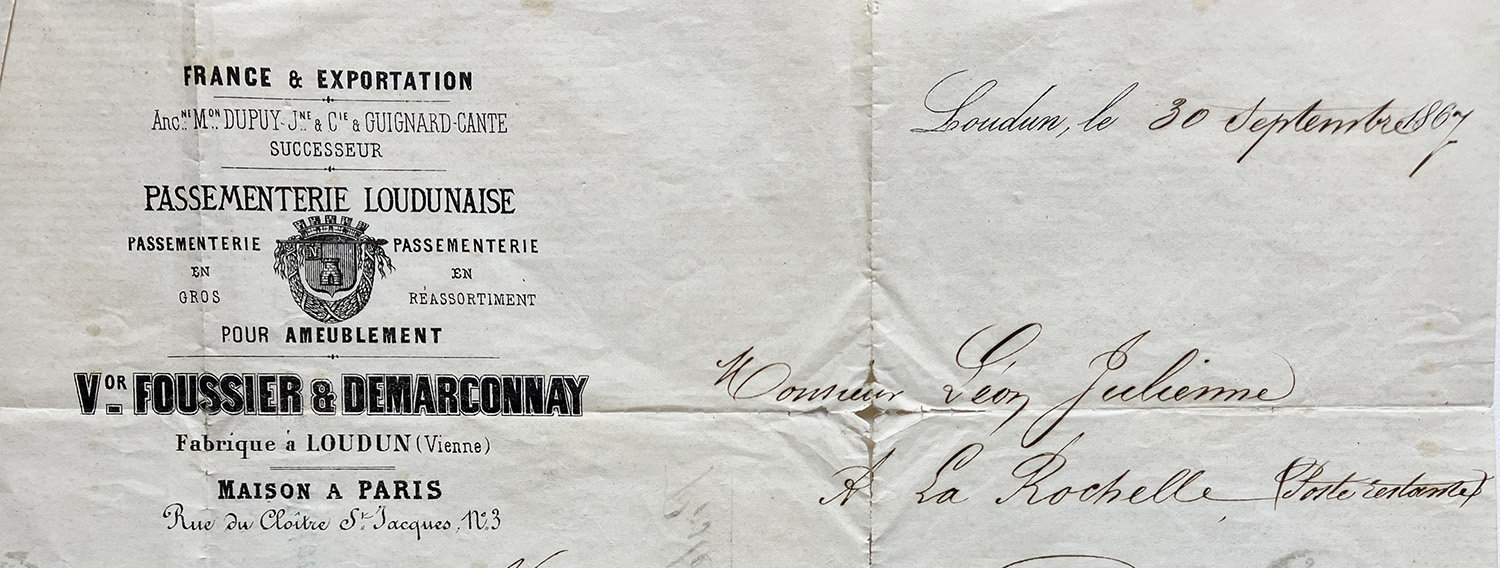 FRANCE & EXPORTATION
Anc.NE M.ON DUPUY-J.NE & C.IE & GUIGNARD-CANTE
SUCCESSEUR
PASSEMENTERIE LOUDUNAISE
PASSEMENTERIE PASSEMENTERIE
EN EN
GROS RÉASSORTIMENT
N
POUR AMEUBLEMENT
V.OR FOUSSIER & DEMARCONNAY
Fabrique à LOUDUN (Vienne)
MAISON A PARIS
Rue du Cloître St. Jacques, N.º 3
Loudun, le 30 Septembre 1867
Monsieur Léon Julienne
A La Rochelle, (Poste restante)